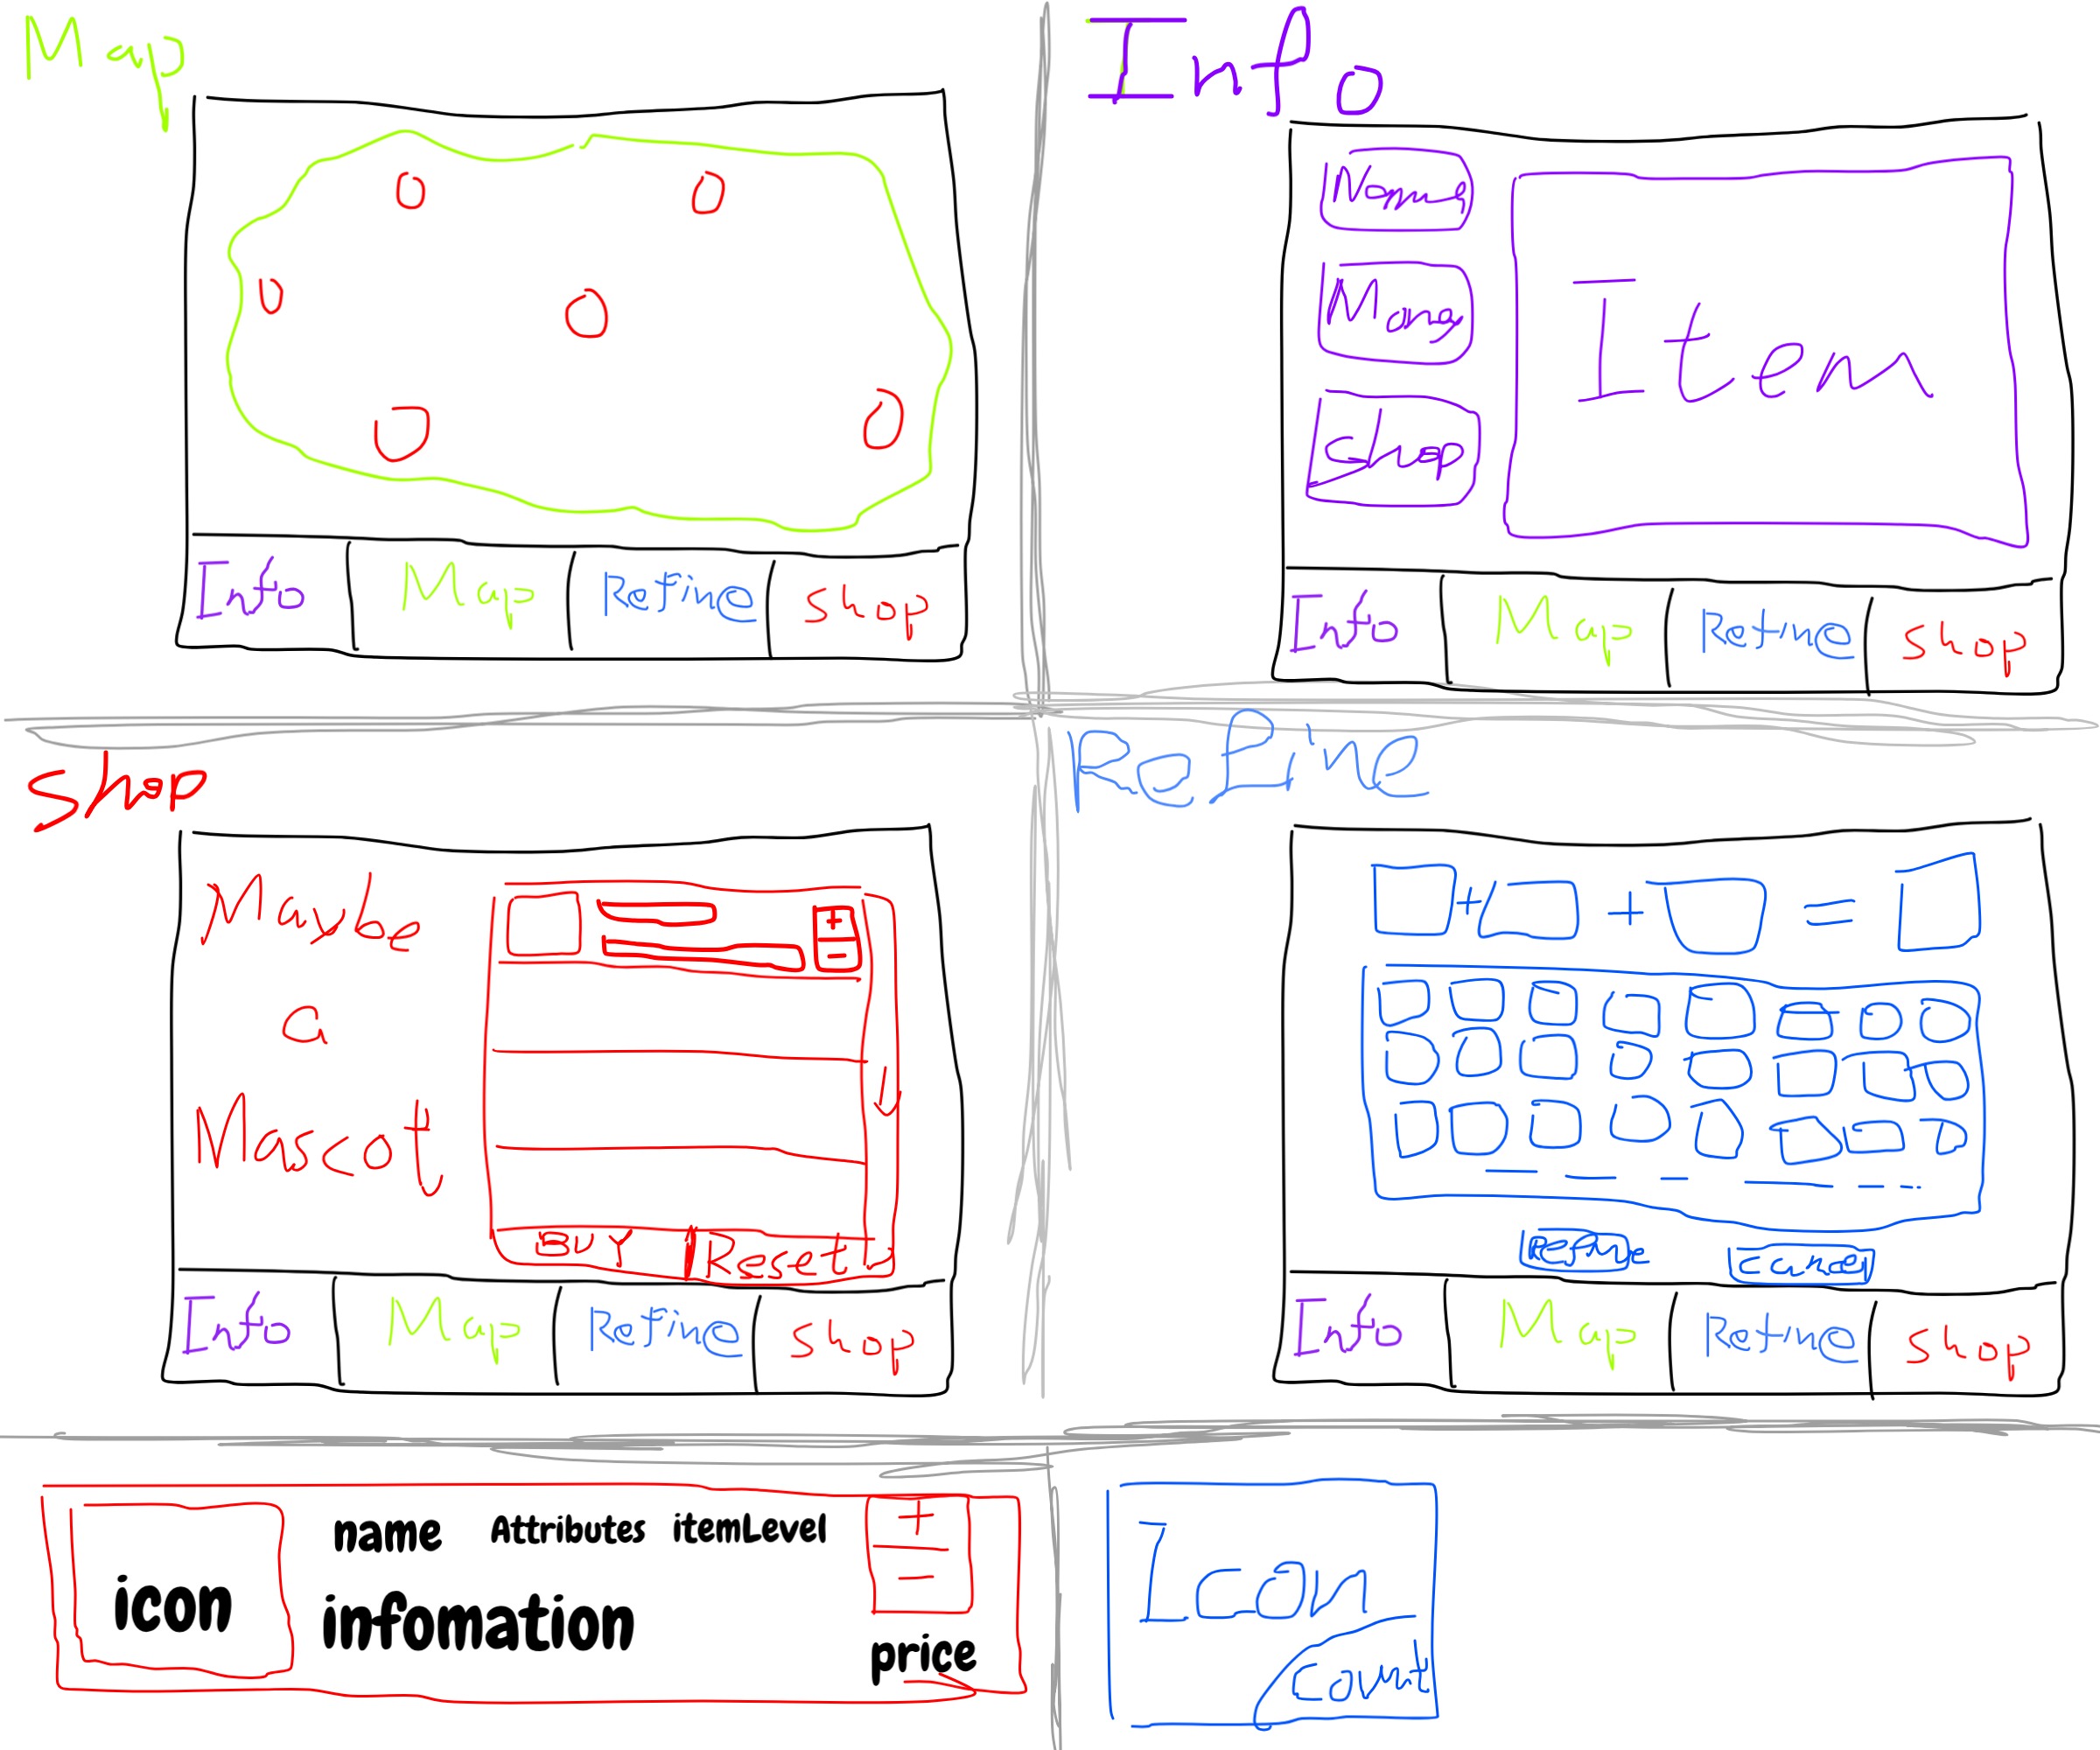 Map
Info Map Refine shop
Info
Name
Item
Shop
Info Map Refine shop
Shop
Maybe
a
Mascot
+
-
BUY Reset
Info Map Refine shop
Refine
+ + =
Refine Cancel
Info Map Refine shop
icon
name Attributes itemLevel
infomation
+
-
price
Icon
Count